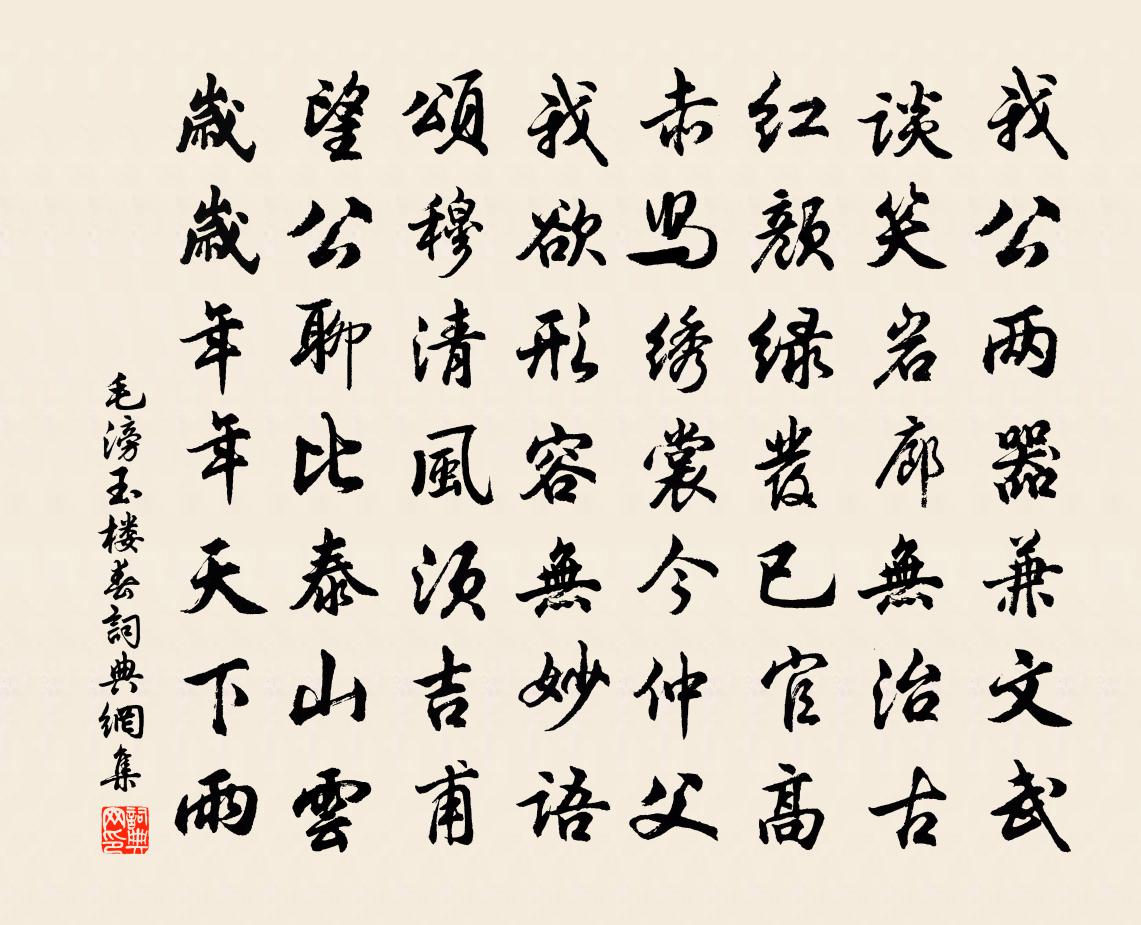 我公两器兼文武
談笑岩廊無治古
紅顔緑發已官高
赤舄綉裳今仲父
我欲形容無妙語
頌穆清風須吉甫
望公聊比泰山雲
歲歲年年天下雨
毛滂玉楼春詞典網集
詞典网印